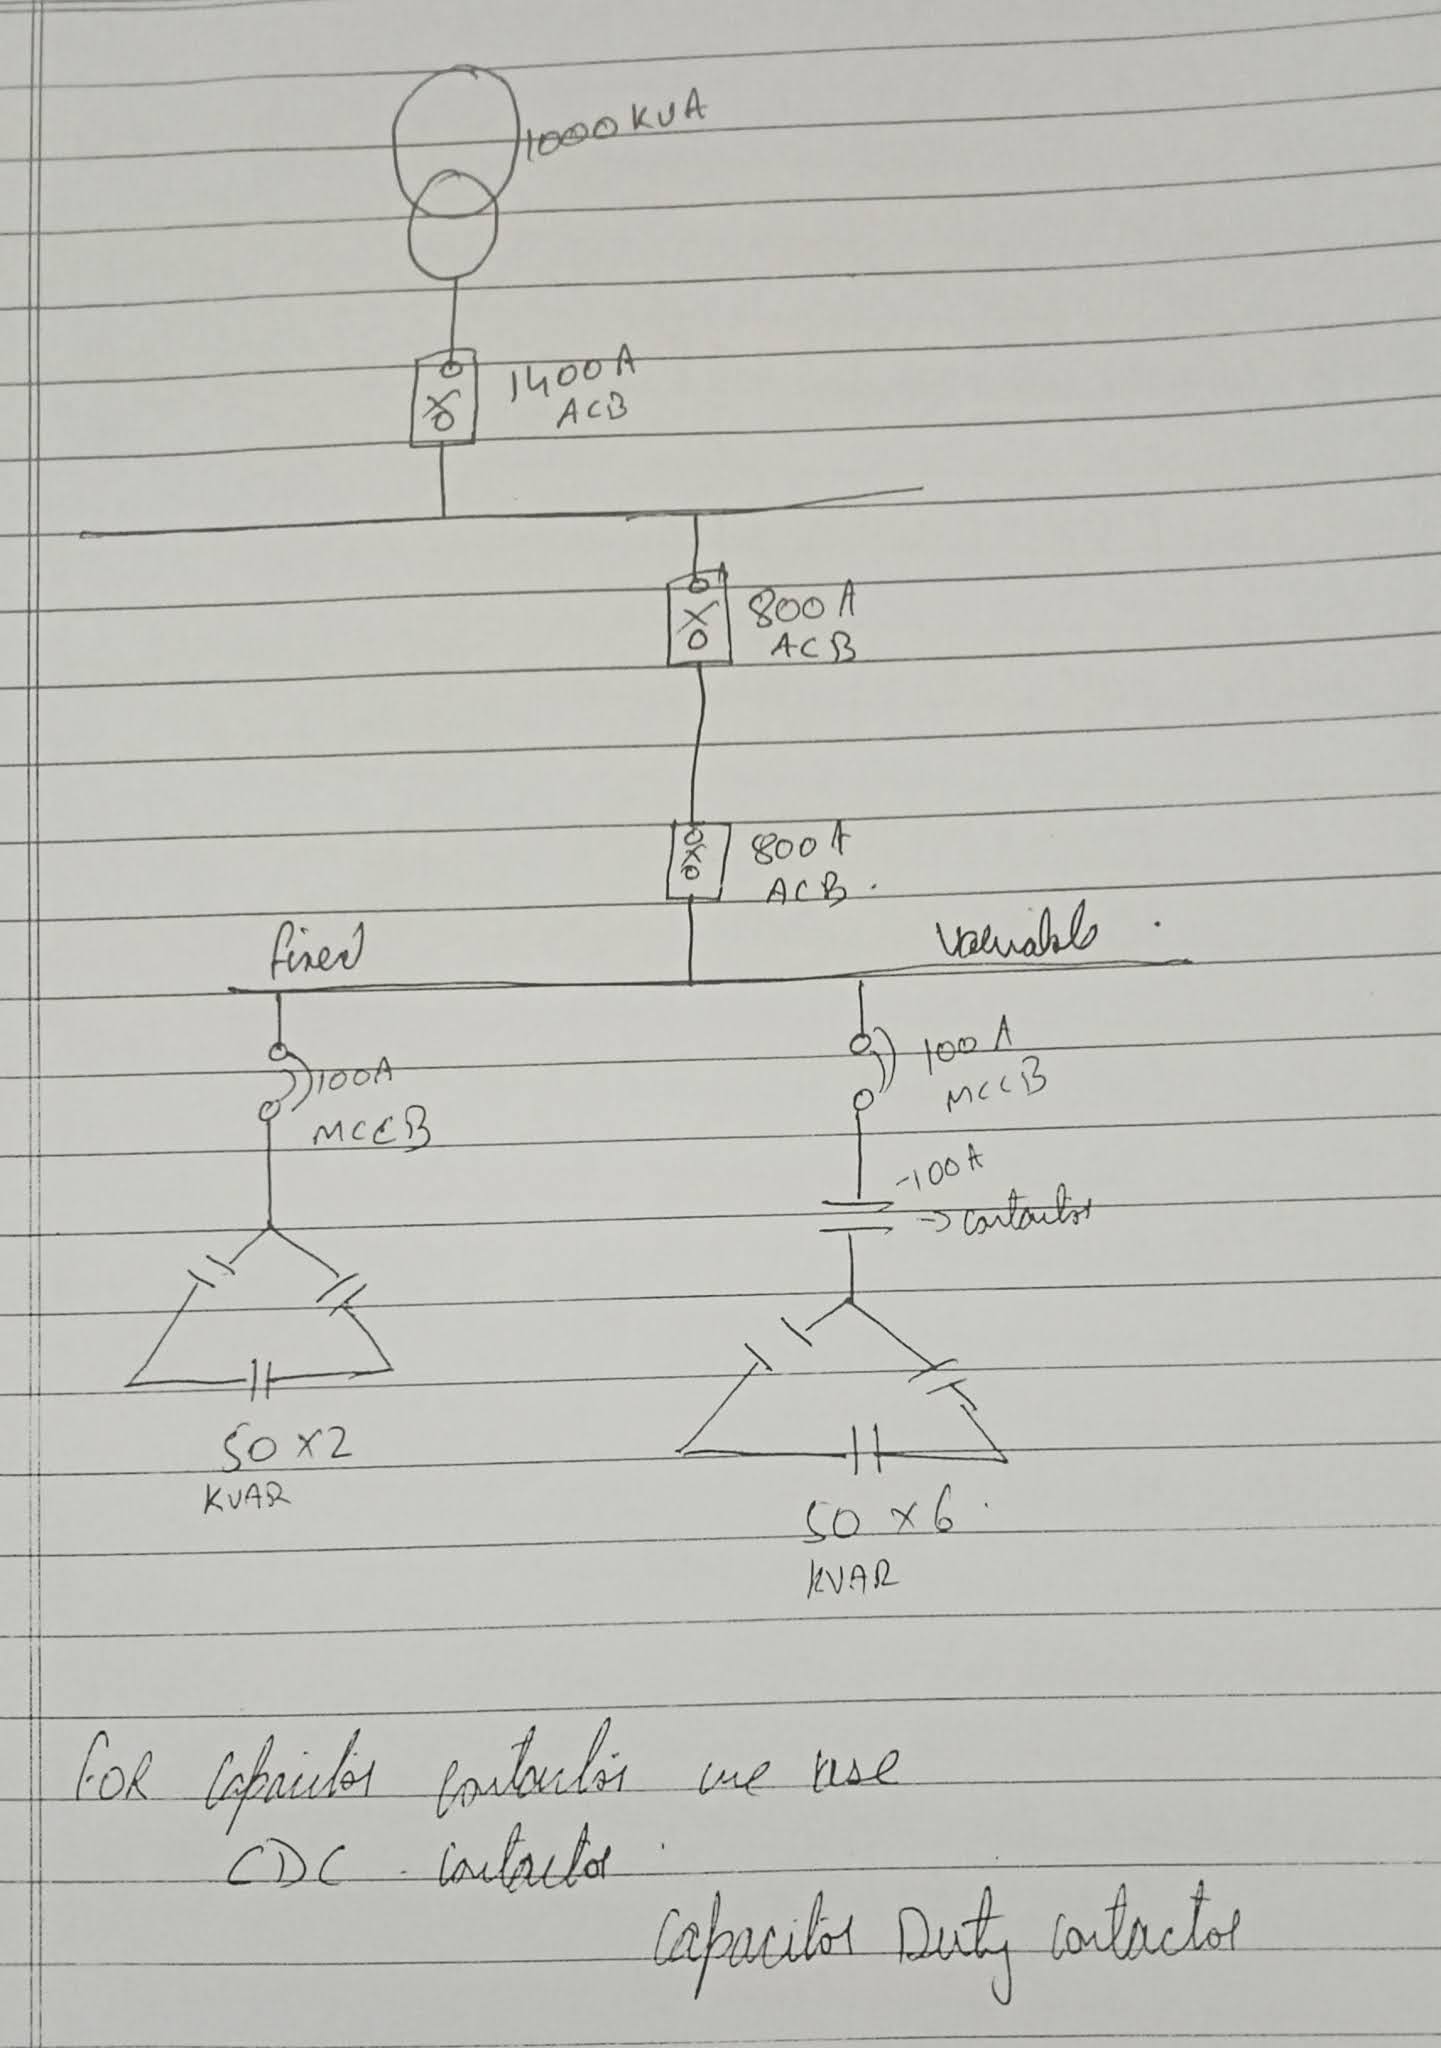 1000 KVA
1400A
ACB
800A
ACB
800A
ACB.
fixed
Variable
100A
MCCB
100A
MCCB
100A
→ contactor
50 x 2
KVAR
50 x 6
KVAR
FOR Capacitor contactor we use
CDC - contactor
Capacitor Duty contactor